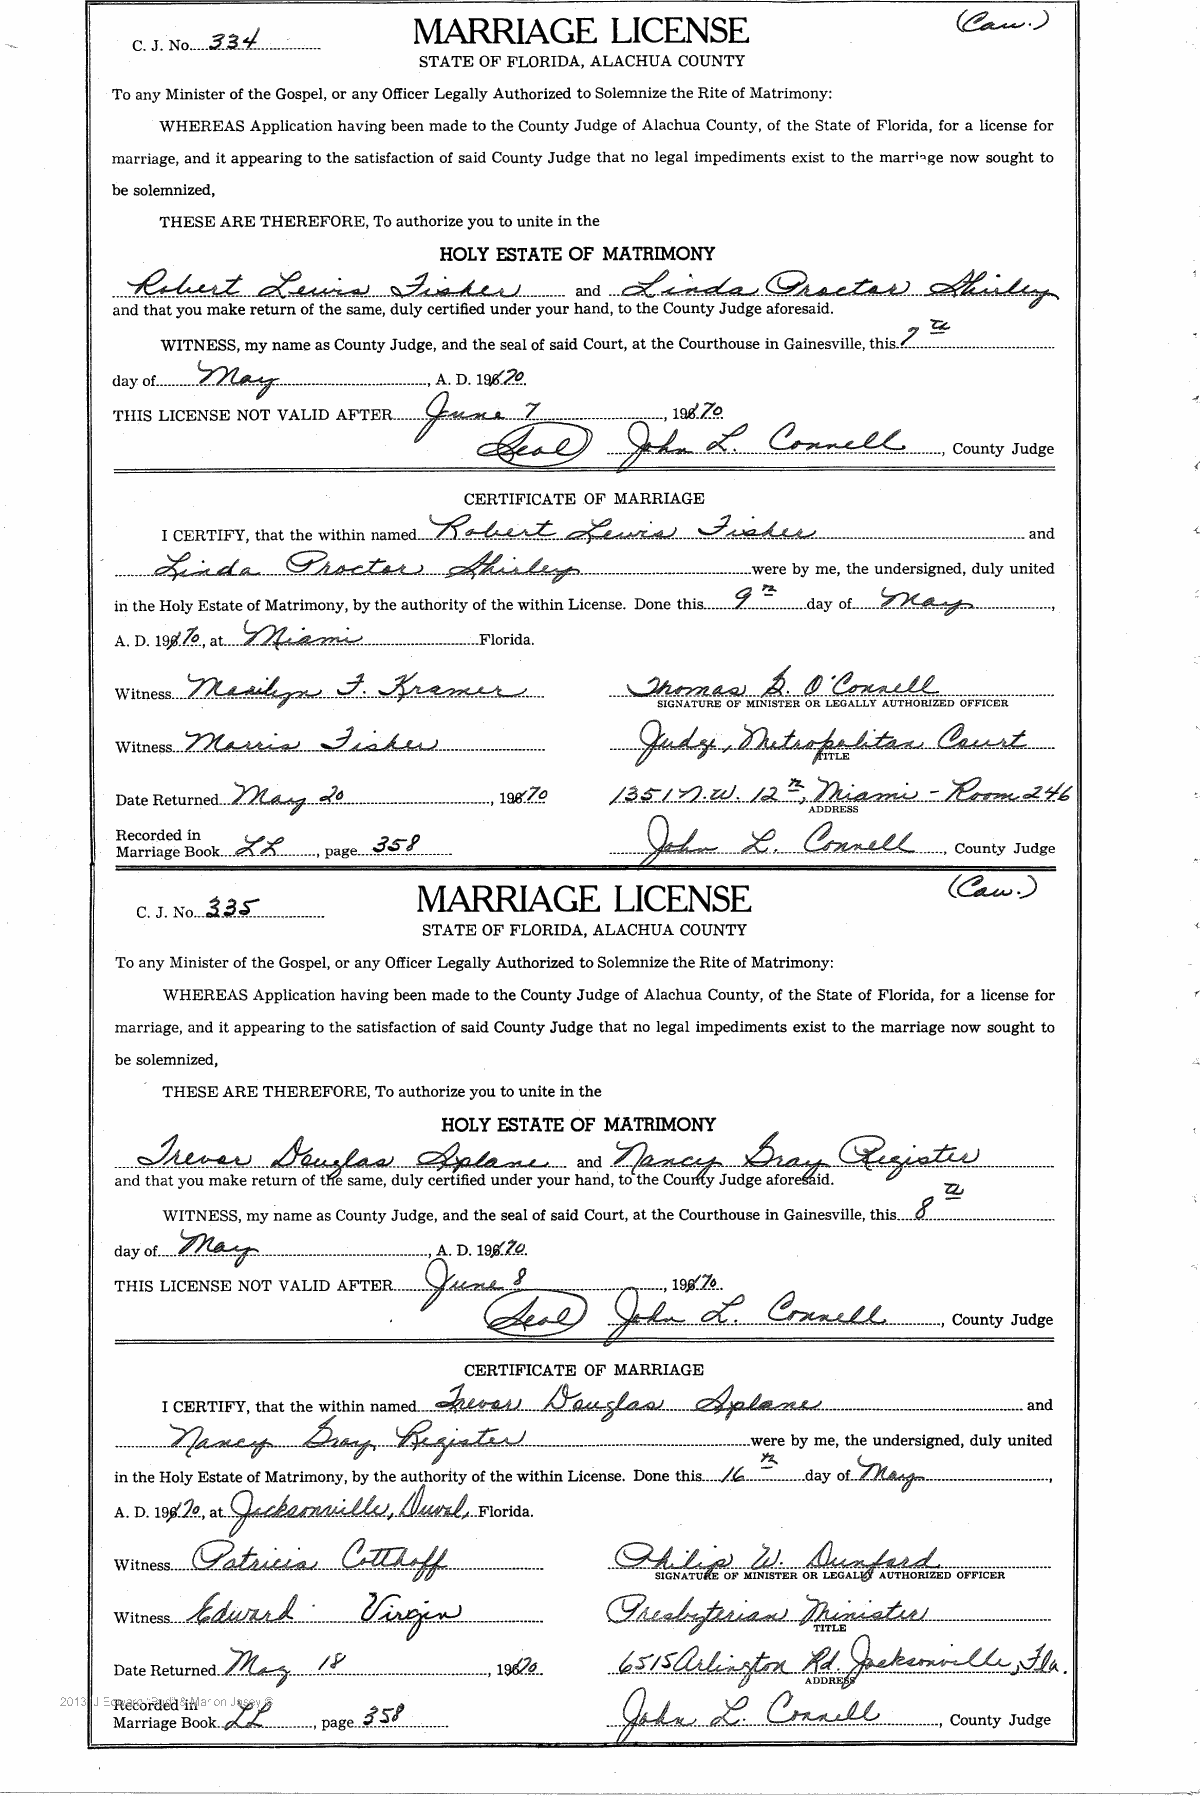 C. J. No. 334
MARRIAGE LICENSE
(Cau.)
STATE OF FLORIDA, ALACHUA COUNTY
To any Minister of the Gospel, or any Officer Legally Authorized to Solemnize the Rite of Matrimony:
WHEREAS Application having been made to the County Judge of Alachua County, of the State of Florida, for a license for
marriage, and it appearing to the satisfaction of said County Judge that no legal impediments exist to the marriage now sought to
be solemnized,
THESE ARE THEREFORE, To authorize you to unite in the
HOLY ESTATE OF MATRIMONY
Robert Lewis Fisher and Linda Proctor Shirley
and that you make return of the same, duly certified under your hand, to the County Judge aforesaid.
WITNESS, my name as County Judge, and the seal of said Court, at the Courthouse in Gainesville, this 7th
day of May, A. D. 1970.
THIS LICENSE NOT VALID AFTER June 7, 1970
(Seal) John L. Connell, County Judge
CERTIFICATE OF MARRIAGE
I CERTIFY, that the within named Robert Lewis Fisher and
Linda Proctor Shirley were by me, the undersigned, duly united
in the Holy Estate of Matrimony, by the authority of the within License. Done this 9th day of May,
A. D. 1970, at Miami Florida.
Witness Marilyn F. Kramer Thomas G. O'Connell
SIGNATURE OF MINISTER OR LEGALLY AUTHORIZED OFFICER
Witness Morris Fisher Judge, Metropolitan Court
TITLE
Date Returned May 20, 1970 1351 N.W. 12th, Miami - Room 246
ADDRESS
Recorded in
Marriage Book LL, page 358 John L. Connell, County Judge
C. J. No. 335
MARRIAGE LICENSE
(Cau.)
STATE OF FLORIDA, ALACHUA COUNTY
To any Minister of the Gospel, or any Officer Legally Authorized to Solemnize the Rite of Matrimony:
WHEREAS Application having been made to the County Judge of Alachua County, of the State of Florida, for a license for
marriage, and it appearing to the satisfaction of said County Judge that no legal impediments exist to the marriage now sought to
be solemnized,
THESE ARE THEREFORE, To authorize you to unite in the
HOLY ESTATE OF MATRIMONY
Trevor Douglas Splane and Nancy Gray Register
and that you make return of the same, duly certified under your hand, to the County Judge aforesaid.
WITNESS, my name as County Judge, and the seal of said Court, at the Courthouse in Gainesville, this 8th
day of May, A. D. 1970.
THIS LICENSE NOT VALID AFTER June 8, 1970.
(Seal) John L. Connell, County Judge
CERTIFICATE OF MARRIAGE
I CERTIFY, that the within named Trevor Douglas Splane and
Nancy Gray Register were by me, the undersigned, duly united
in the Holy Estate of Matrimony, by the authority of the within License. Done this 16th day of May,
A. D. 1970, at Jacksonville, Duval, Florida.
Witness Patricia Cotthoff Philip W. Dunford
SIGNATURE OF MINISTER OR LEGALLY AUTHORIZED OFFICER
Witness Edward Virgin Presbyterian Minister
TITLE
Date Returned May 18, 1970. 6515 Arlington Rd. Jacksonville, Fla.
ADDRESS
2013
Recorded in
Marriage Book LL, page 358 John L. Connell, County Judge